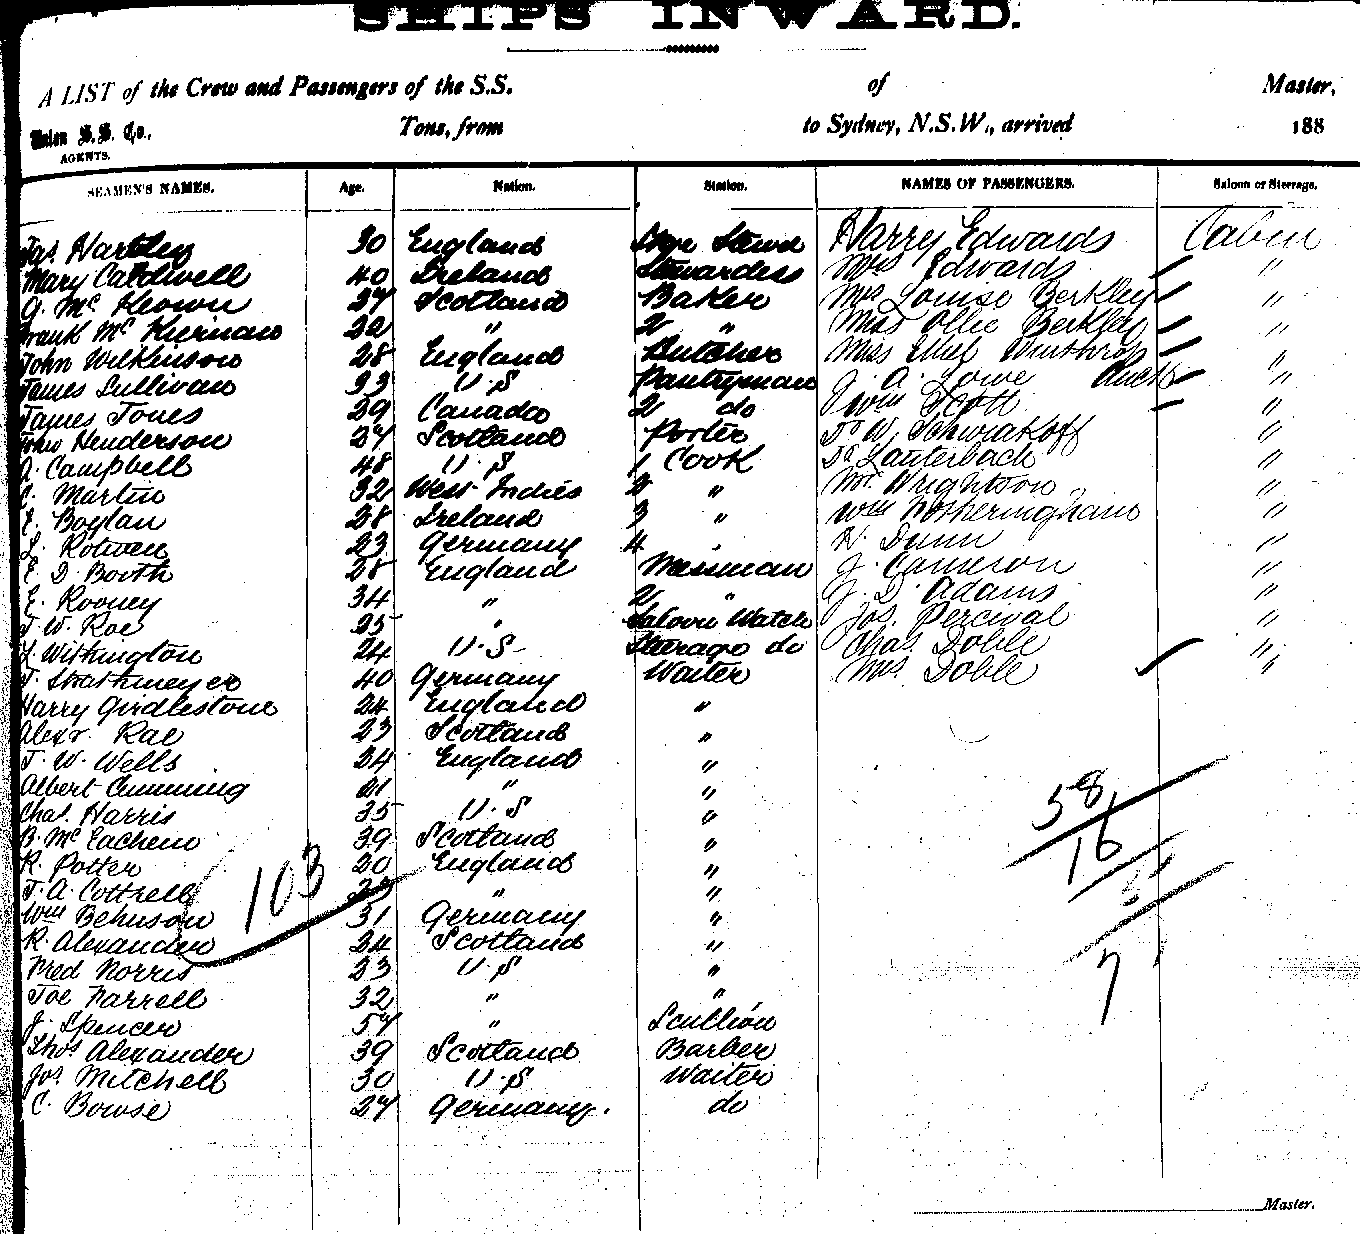 SHIPS INWARD.
A LIST of the Crew and Passengers of the S.S. of Master,
Union S.S. Co., Tons, from to Sydney, N.S.W., arrived 188
AGENTS.
SEAMEN'S NAMES. Age. Nation. Station. NAMES OF PASSENGERS. Saloon or Steerage.
Jas Hartley 30 England Stewd Harry Edwards Cabin
Mary Caldwell 40 Ireland Stewardess Mrs Edwards "
G. Mc Keown 27 Scotland Baker Mrs Louise Berkley "
Frank Mc Kiernan 22 " 2 " Miss Ollie Berkley "
John Wilkinson 28 England Butcher Miss Ethel Winthrop "
James Sullivan 33 U.S Pantryman J. A. Lowe "
James Jones 29 Canada 2 do Wm Scott "
John Henderson 27 Scotland Porter W. Schwrakoff "
A. Campbell 48 U.S 1 Cook Lauterbach "
C. Martin 32 West Indies 2 " Mr Wrightson "
E. Boylan 28 Ireland 3 " Wm Fotheringham "
L. Rotwen 23 Germany 4 " H. Dunn "
E. D. Booth 28 England Messman J. Cameron "
E. Rooney 34 " 2 " J. D. Adams "
J. W. Roe 25 " Saloon Watch Jos. Percival "
L. Withington 24 U.S Steerage do Chas Doble "
J. Strathmeyer 40 Germany Waiter Mrs Doble "
Harry Girdlestone 24 England "
Alexr. Rae 23 Scotland "
J. W. Wells 24 England "
Albert Cumming 21 " "
Chas. Harris 35 U.S "
B. Mc Eachern 39 Scotland "
R. Potter 20 England "
J. A. Cottrell 23 " "
Wm Behnson 31 Germany "
R. Alexander 24 Scotland "
Fred Norris 23 U.S "
Joe Farrell 32 " "
J. Spencer 57 " Scullion
Thos Alexander 39 Scotland Barber
Jos. Mitchell 30 U.S Waiter
C. Bowse 27 Germany. do
103
58
16
7
Master.